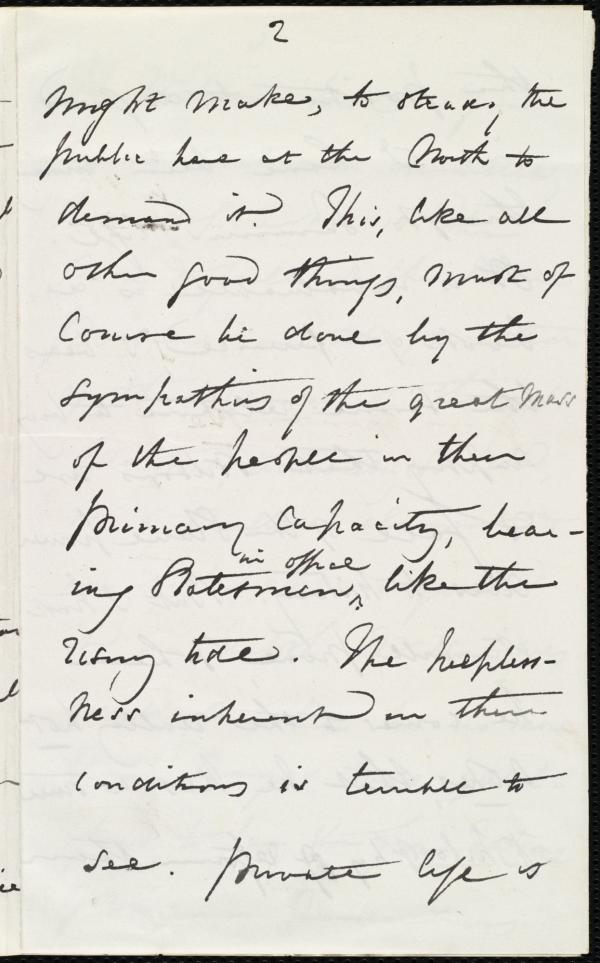 2
might make, to steady, the
public here at the North to
demand it. This, like all
other good things, must of
Course be done by the
Sympathies of the great mass
of the people in their
primary Capacity, bear-
ing Statesmen, in office like the
rising tide. The helpless-
ness inherent in these
conditions is terrible to
see. private life is